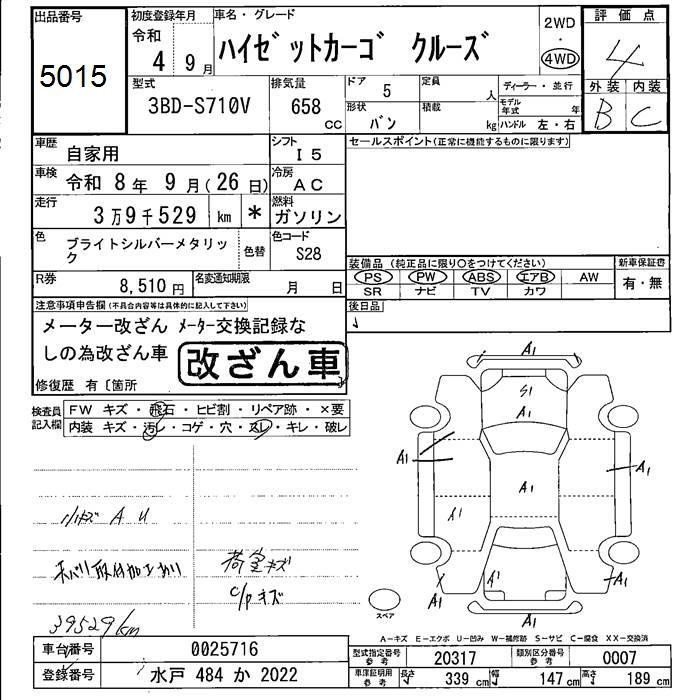 出品番号
5015
初度登録年月
令和
4 9月
車名・グレード
ハイゼットカーゴ クルーズ
2WD
・
4WD
評価点
4
外装 内装
B C
型式
3BD-S710V
排気量
658
CC
ドア
5
定員
人
形状
バン
積載
kg
ディーラー・並行
モデル年式 年
ハンドル 左・右
車歴
自家用
シフト
I 5
セールスポイント(正常に機能するものに限ります)
車検
令和 8年 9月(26日)
冷房
AC
走行
3万9千529 km *
燃料
ガソリン
色
ブライトシルバーメタリック
色替
色コード
S28
装備品 (純正品に限り○をつけてください)
新車保証書
PS PW ABS エアB AW
SR ナビ TV カワ
有・無
R券
8,510円
名変通知期限
月 日
後日品
注意事項申告欄(不具合内容等は具体的に記入して下さい)
メーター改ざん メーター交換記録な
しの為改ざん車
改ざん車
修復歴 有〔箇所
検査員
記入欄
FW キズ・飛石・ヒビ割・リペア跡・×要
内装 キズ・汚レ・コゲ・穴・スレ・キレ・破レ
A1
S1
A1
A1
A1
A1
A1
A1
A1
A1
A1
A1
小キズ A U
荷室キズ
C/P キズ
39529km
スペア
A-キズ E-エクボ U-凹み W-補修跡 S-サビ C-腐食 XX-交換済
車台番号
0025716
登録番号
水戸 484 か 2022
型式指定番号
参考
20317
類別区分番号
参考
0007
車庫証明用
参考
長さ
339 cm
幅
147 cm
高さ
189 cm